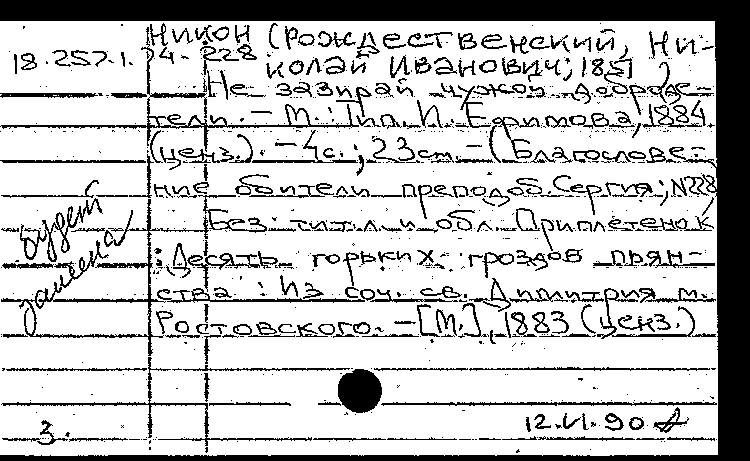 Никон (Рождественский, Ни-
18.257.1.74-228 колай Иванович; 1851 )
Не зазирай чужой доброде-
тели. - М.: Тип. И. Ефимова, 1884
(ценз.). - 4с.; 23см. - (Благослове-
ние обители преподоб. Сергия; №228
Без тит. л. и обл. Приплетено к
: Десять горьких гроздов пьян-
ства : Из соч. св. Димитрия м.
Ростовского. - [М.], 1883 (ценз.)
будет
замена
3.
12.VI.90